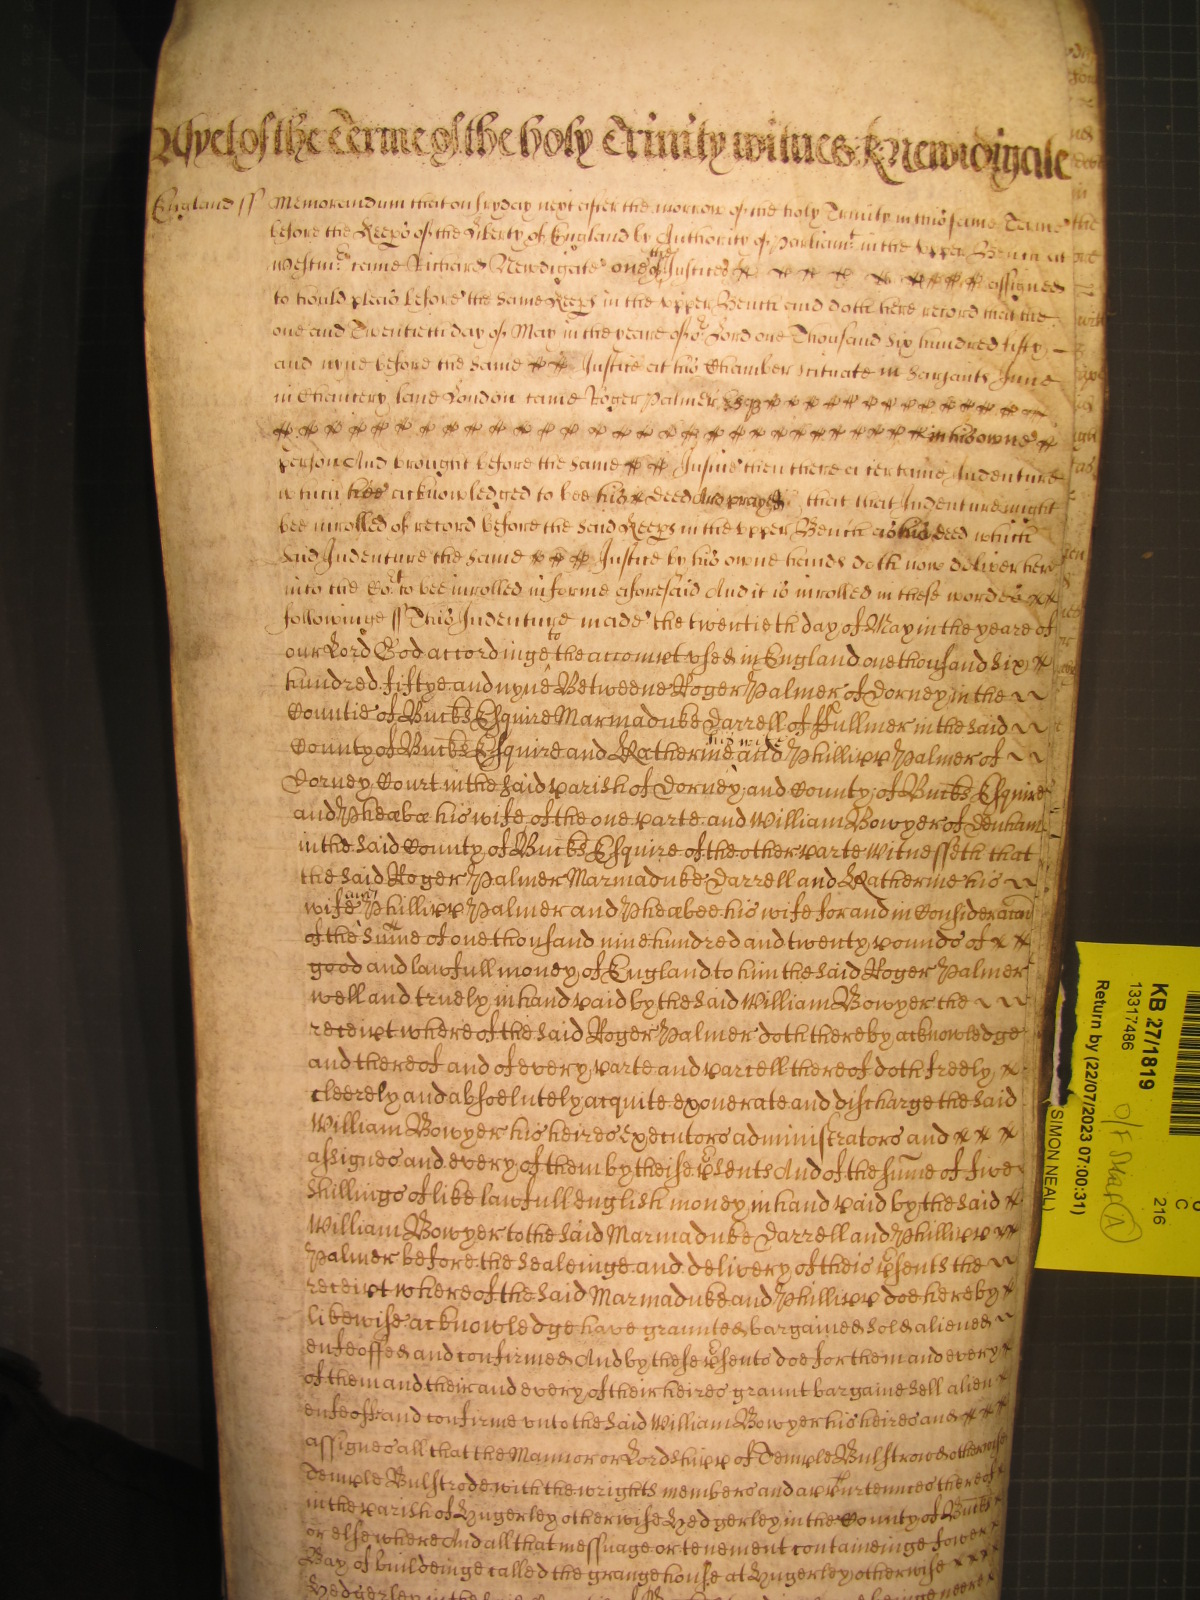 As yet of the Terme of the holy Trinity witnes R Newdigate
England ss Memorandum that on fryday next after the morrow of the holy Trinity in this same Terme
before the Keeprs of the Liberty of England by Authority of Parliamt in the Upper Bench at
Westmr came Richard Newdigate one of the Justices assigned
to hould pleas before the same Keeprs in the upper Bench and doth here record that the
one and Twentieth day of May in the yeare of or Lord one Thousand six hundred fifty
and nyne before the same Justice at his Chamber scituate in Sarjants Inne
in Chancery lane London came Roger Palmer Esqr
in his owne
person And brought before the same Justice then there a certaine Indenture
which hee acknowledged to bee his deed And prayes that that Indenture might
bee inrolled of record before the said Keeprs in the upper Bench as his deed which
said Indenture the same Justice by his owne hands doth now deliver here
into the Cort to bee inrolled in forme aforesaid And it is inrolled in these wordes
followinge ss This Indenture made the twentieth day of May in the yeare of
our Lord God accordinge to the accompt used in England one thousand six
hundred fiftye and nyne Betweene Roger Palmer of Dorney in the
Countie of Bucks Esquire Marmaduke Darrell of ffullmer in the said
County of Bucks Esquire and Katherine his wife and Phillipp Palmer of
Dorney Court in the said parish of Dorney and County of Bucks Esquire
and Pheabæ his wife of the one parte and William Bowyer of Denham
in the said County of Bucks Esquire of the other parte Witnesseth that
the said Roger Palmer Marmaduke Darrell and Katherine his
wife and Phillipp Palmer and Pheabee his wife for and in Consideracon
of the sume of one thousand nine hundred and twenty pounds of
good and lawfull money of England to him the said Roger Palmer
well and truely in hand paid by the said William Bowyer the
receipt whereof the said Roger Palmer doth thereby acknowledge
and thereof and of every parte and parcell thereof doth freely
cleerely and absoelutely acquite exonerate and discharge the said
William Bowyer his heires Executors administrators and
assignes and every of them by theise psents And of the sume of five
shillings of like lawfull english money in hand paid by the said
William Bowyer to the said Marmaduke Darrell and Phillipp
Palmer before the sealeinge and delivery of theis psents the
receipt whereof the said Marmaduke and Phillipp doe hereby
likewise acknowledge have graunted bargained sold aliened
enfeoffed and confirmed And by these psents doe for them and every
of them and their and every of their heires graunt bargaine sell alien
enfeoff and confirme unto the said William Bowyer his heires and
assignes all that the Mannor or Lordshipp of Temple Bulstrowd otherwise
Temple Bulstrode with the wrights members and appurtennces thereof
in the parish of Hugerley otherwise Hedgerley in the County of Bucks
or elsewhere And all that messuage or tenement containeinge fower
Bay of buildeinge called the grange house at Hugerley otherwise
Hedgerley in the
KB 27/1819
13317486
Return by (22/07/2023 07:00:31)
SIMON NEAL)
216
C
O/F Staff A